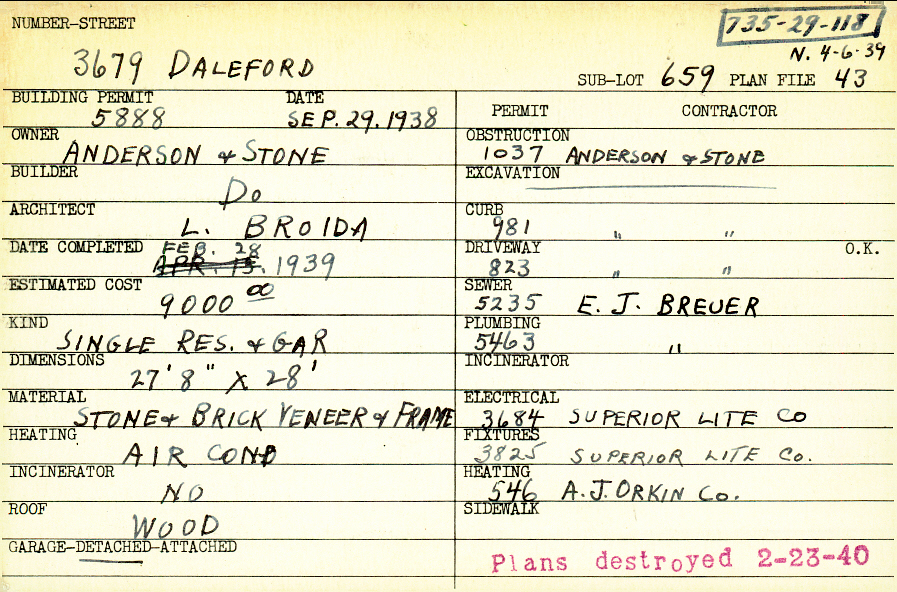 735-29-118
NUMBER-STREET
N. 4-6-39
3679 DALEFORD
SUB-LOT 659 PLAN FILE 43
BUILDING PERMIT DATE
5888 SEP. 29. 1938
OWNER
ANDERSON & STONE
BUILDER
DO
ARCHITECT
L. BROIDA
DATE COMPLETED FEB. 28
APR. 15. 1939
ESTIMATED COST
9000 00
KIND
SINGLE RES. & GAR
DIMENSIONS
27' 8" X 28'
MATERIAL
STONE & BRICK VENEER & FRAME
HEATING
AIR COND
INCINERATOR
NO
ROOF
WOOD
GARAGE-DETACHED-ATTACHED
PERMIT CONTRACTOR
OBSTRUCTION
1037 ANDERSON & STONE
EXCAVATION
CURB
981 " "
DRIVEWAY O.K.
823 " "
SEWER
5235 E. J. BREUER
PLUMBING
5463 "
INCINERATOR
ELECTRICAL
3684 SUPERIOR LITE CO
FIXTURES
3825 SUPERIOR LITE CO.
HEATING
546 A. J. ORKIN CO.
SIDEWALK
Plans destroyed 2-23-40